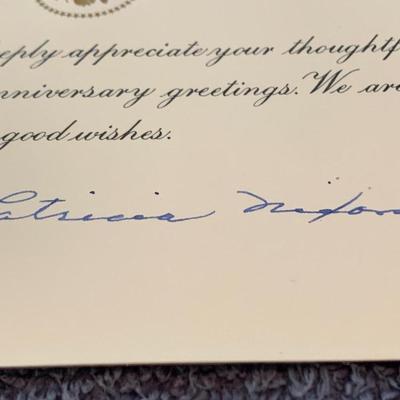 eeply appreciate your thoughtf
nniversary greetings. We are
good wishes.
atricia Nixon